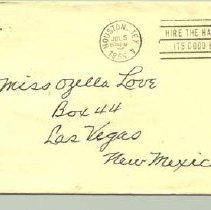 HOUSTON, TEX.
JUL 5
HIRE THE HA
ITS GOOD B
Miss Ozella Love
Box 44
Las Vegas
New Mexico